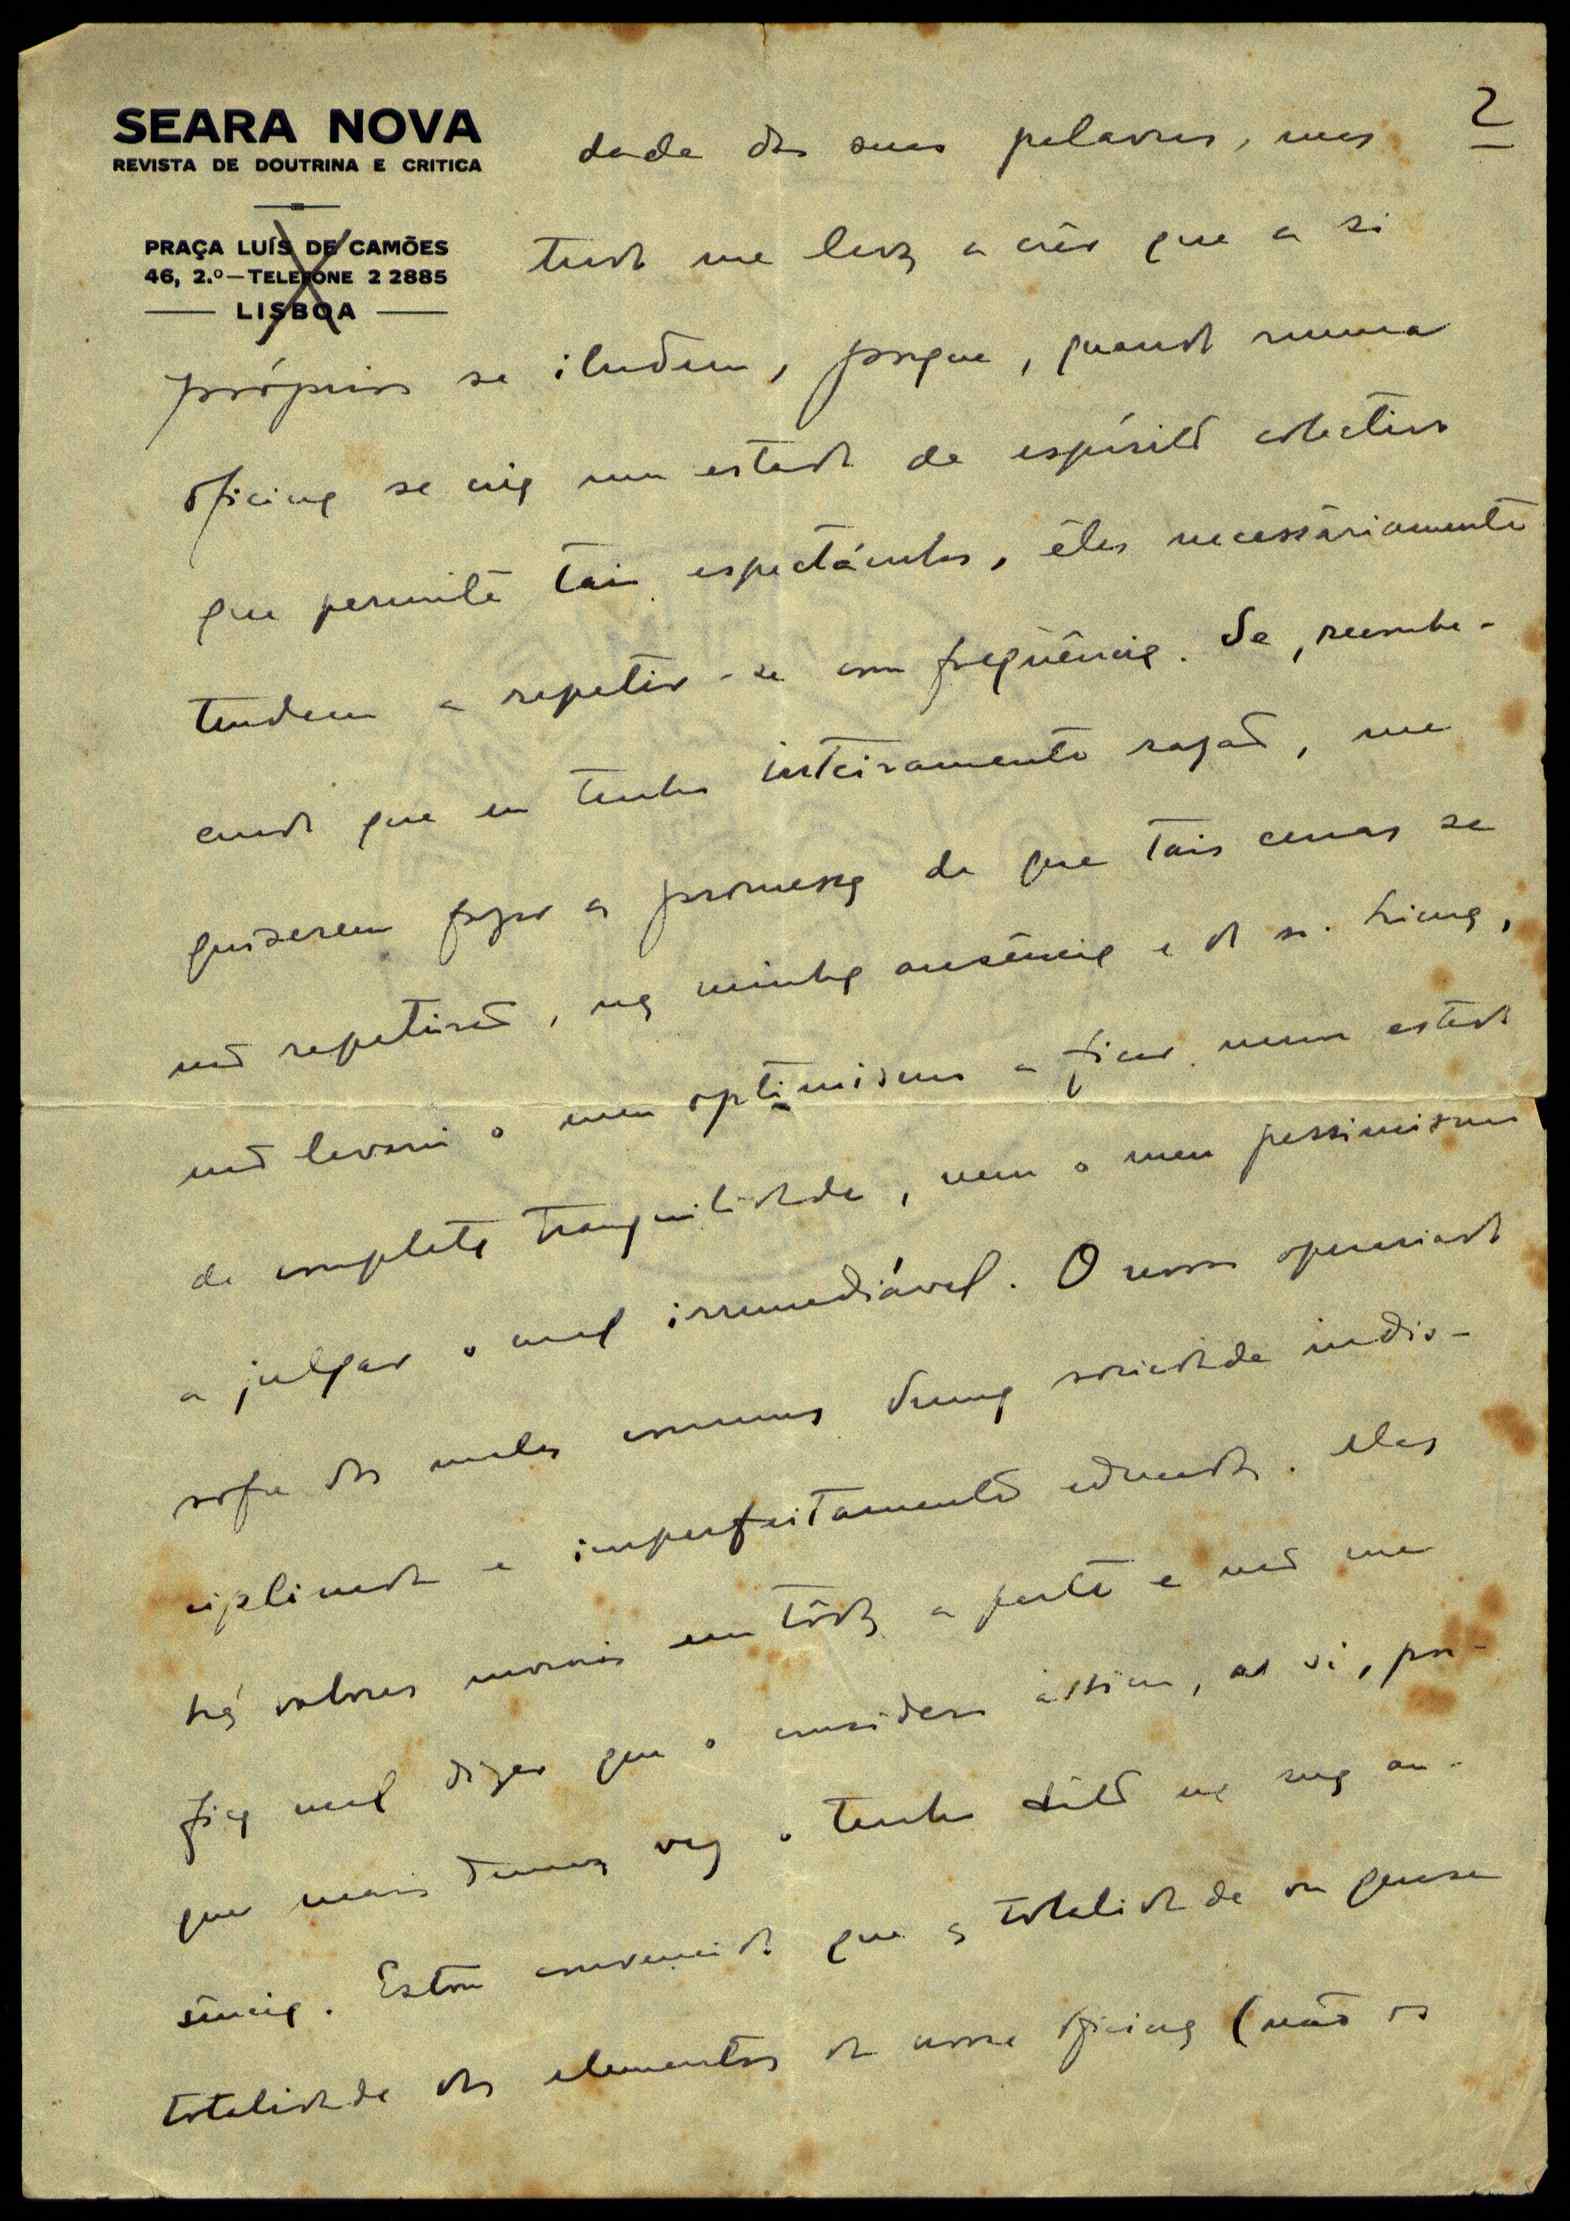 SEARA NOVA
REVISTA DE DOUTRINA E CRITICA
PRAÇA LUÍS DE CAMÕES
46, 2.º—TELEFONE 2 2885
LISBOA
2
dade das suas palavras, mas
tudo me leva a crêr que a si
próprios se iludem, porque, quando numa
oficina se cria um estado de espírito colectivo
que permite tais espectáculos, êles necessàriamente
tendem a repetir-se com freqüência. Se, reconhe-
cendo que eu tenho inteiramente razão, me
quiserem fazer a promessa de que tais cenas se
não repetirão, na minha ausência e do sr. Lima,
não levarei o meu optimismo a ficar num estado
de completa tranquilidade, nem o meu pessimismo
a julgar o mal irremediável. O nosso operariado
sofre dos males comuns duma sociedade indis-
ciplinada e imperfeitamente educada. Mas
há valores morais em tôda a parte e não me
fica mal dizer que o considero assim, ao si, por-
que mais duma vez o tenho dito na sua au-
sência. Estou convencido que a totalidade ou quase
totalidade dos elementos da nossa oficina (não os